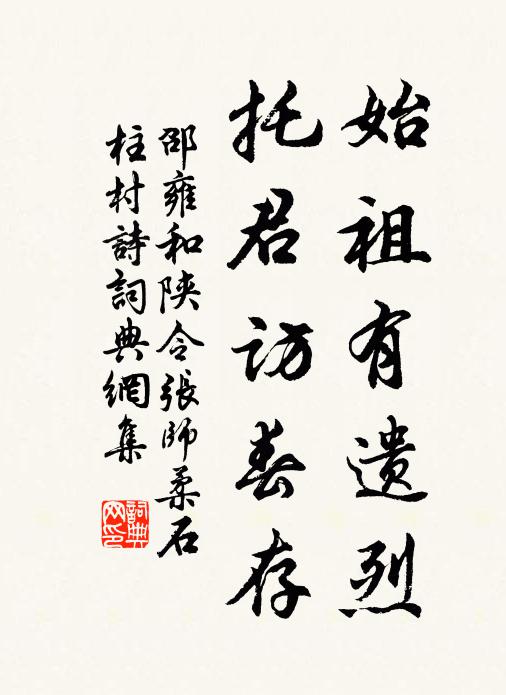 始祖有遗烈
托君访春存
邵雍和陝令張師柔石
柱村詩詞典網集
詞典
网印